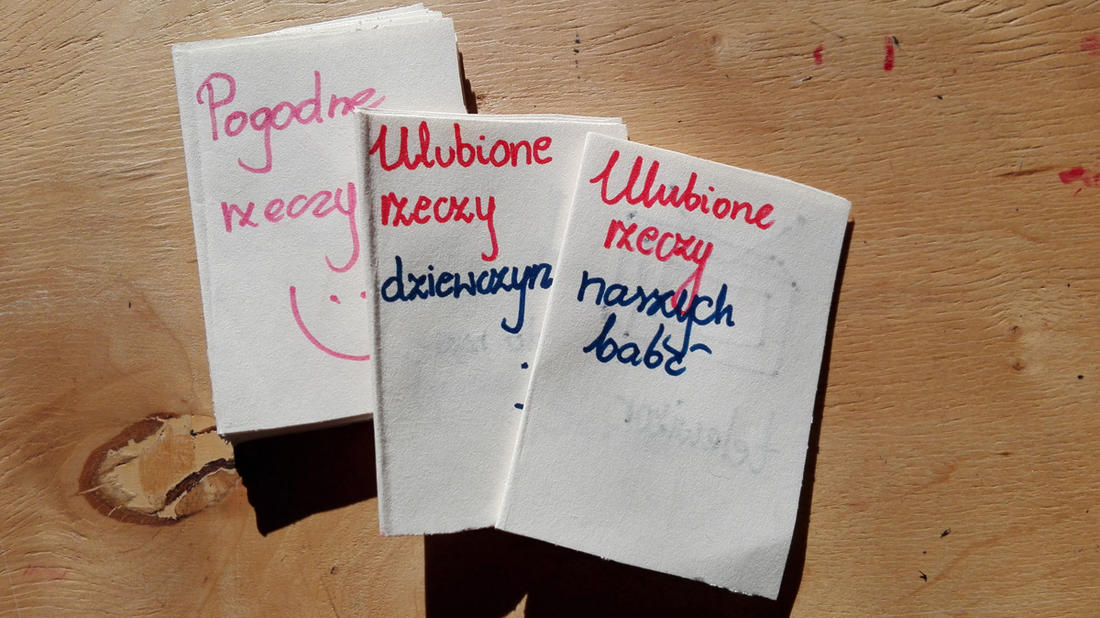 Pogodne
rzeczy
Ulubione
rzeczy
dziewczyn
Ulubione
rzeczy
naszych
babć
telewizor